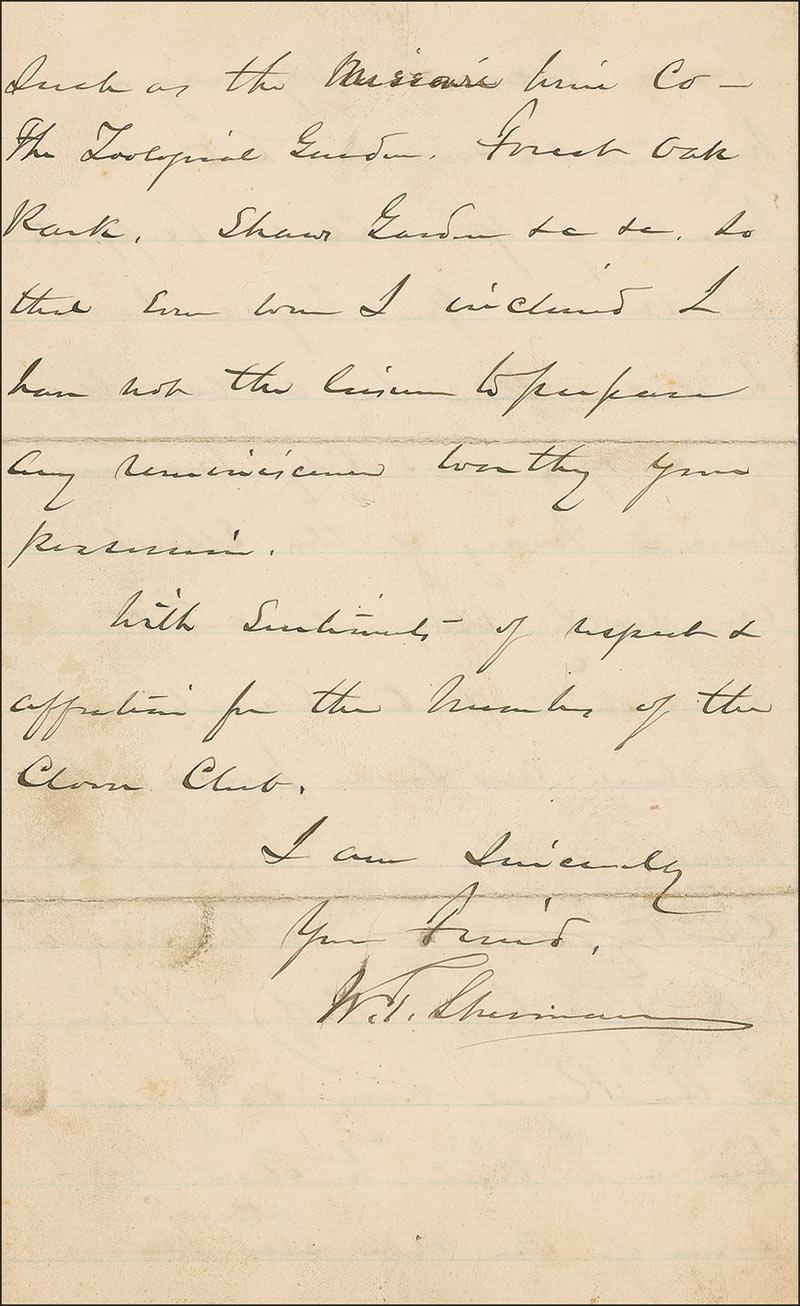 Such as the Missouri Wine Co —
The Zoological Garden. Forest Oak
Park. Shaws Garden &c &c. So
that Even were I inclined I
have not the leisure to prepare
any reminiscences worthy your
possession.
With Sentiments of respect &
affection for the Members of the
Clover Club.
I am Sincerely
Your Friend.
W.T. Sherman